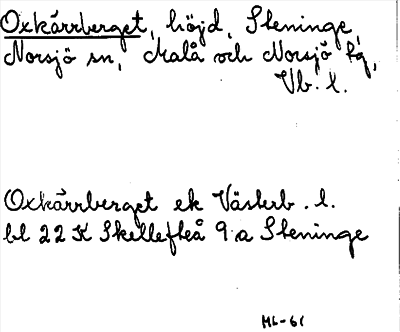 Oxkärrberget, höjd, Steninge,
Norsjö sn, Malå och Norsjö tg,
Vb. l.
Oxkärrberget ek Västerb. l.
bl 22 K Skellefteå 9 a Steninge
ML-61